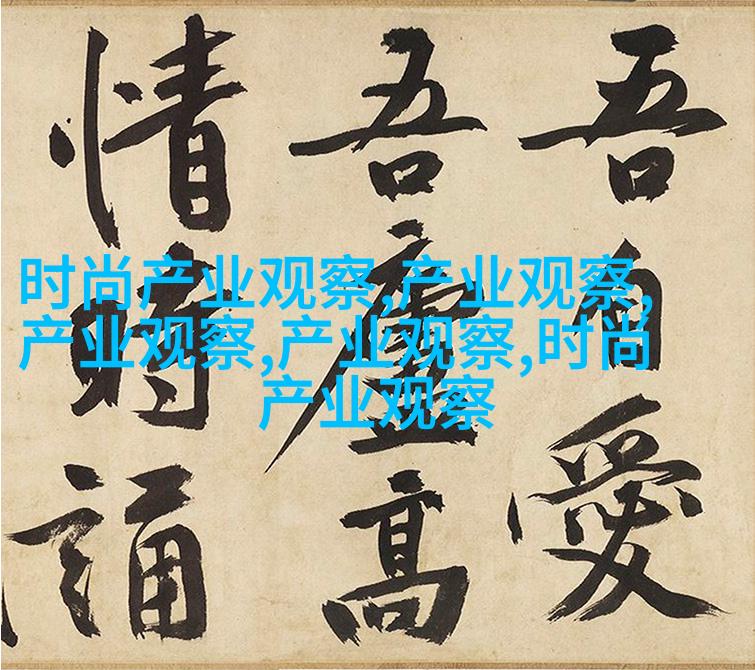 吾自愛
吾廬高
情時誦
时尚产业观察,产业观察,
产业观察,产业观察,时尚
产业观察